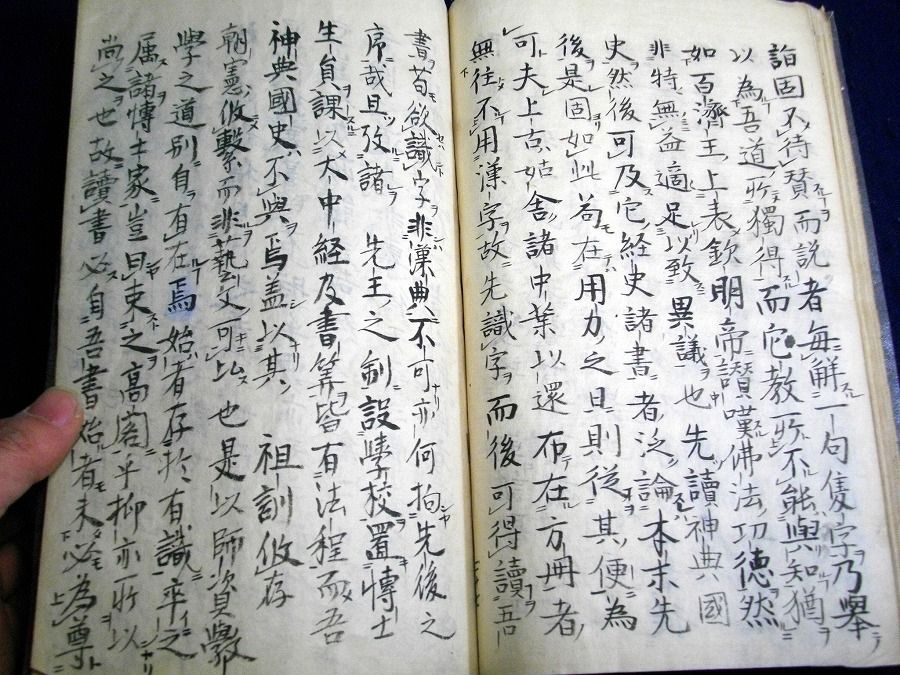 詣固不待賛而説者毎解一句隻字乃舉
以為吾道所獨得而它教所不能與知猶
如百濟王上表欽明帝讃嘆佛法功德然
非特無益適足以致異議也先讀神典國
史然後可及它經史諸書者泛論本末先
後是固如此苟在用力之日則從其便為
可夫上古姑舎諸中葉以還布在方冊者
無往不用漢字故先識字而後可得讀吾
書苟欲識字非漢典不可亦何拘先後之
序哉且攷諸 先王之制設學校置博士
生員課以大中經及書筭皆有法程而吾
神典國史不與焉盖以其 祖訓攸存
朝憲攸繋而非藝文可比也是以師資敩
學之道別自有在焉始者存於有識卒之
属諸博士家豈曰束之高閣乎抑亦所以
尚之也故讀書必自吾書始者未必為尊